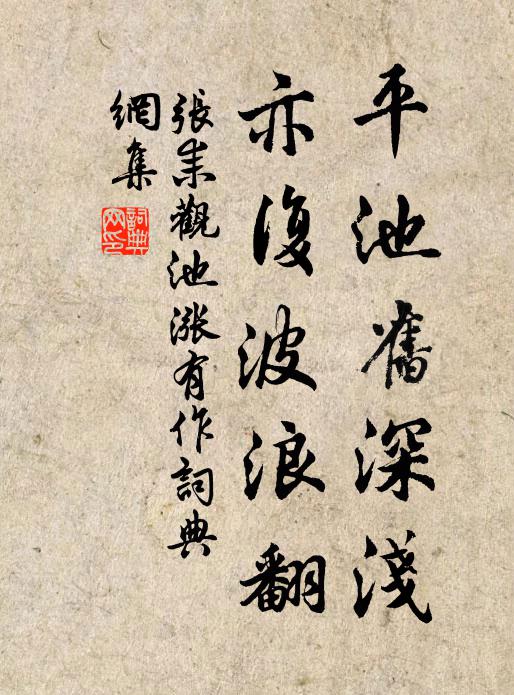 平池舊深淺
亦復波浪翻
張耒觀池漲有作詞典
網集
詞典網印